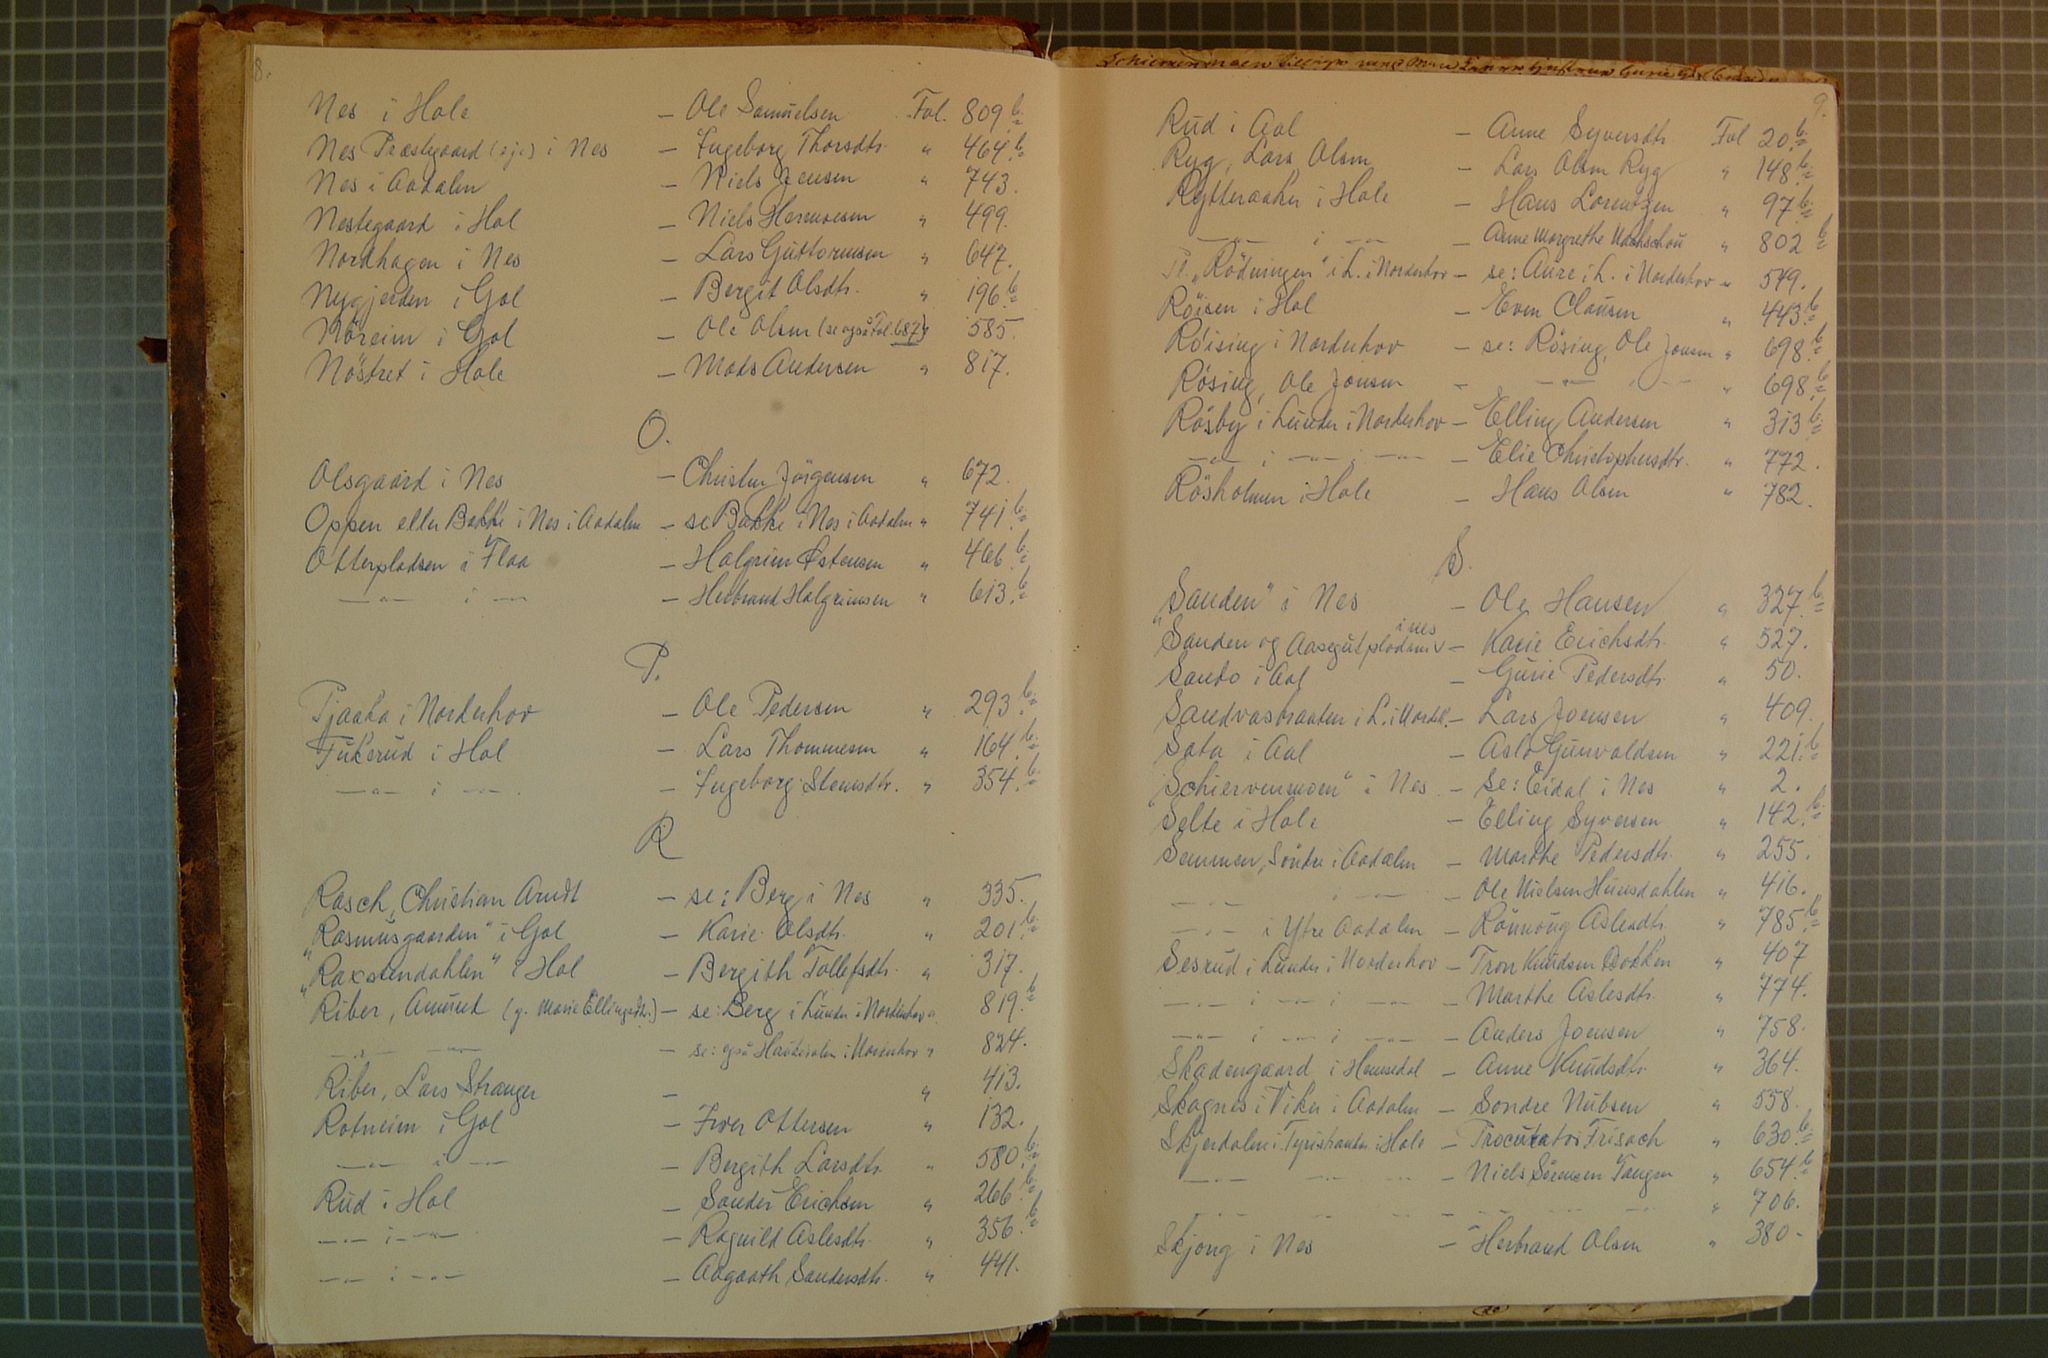 8.
Nes i Hole — Ole Samuelsen Fol. 809 b.
Nes Præstegaard (eje) i Nes — Ingeborg Thorsdtr. " 464. b.
Nes i Aadalen — Niels Jensen " 743.
Nestegaard i Hol — Niels Hermoesen " 499.
Nordhagen i Nes — Lars Guttormsen " 647.
Nygjerden i Gol — Bergit Olsdtr. " 196. b.
Nöreim i Gol — Ole Olsen (se også Fol. 687) " 585.
Nöstret i Hole — Mads Andersen " 817.
O.
Olsgaard i Nes — Christen Jörgensen " 672.
Oppen eller Bakke i Nes i Aadalen — se Bakke i Nes i Aadalen " 741. b.
Otterpladsen i Flaa — Halgrim Østensen " 466. b.
—"— i —"— — Herbrand Halgrimsen " 613. b.
P.
Pjaaka i Norderhov — Ole Pedersen " 293. b.
Pukerud i Hol — Lars Thommesen " 164. b.
—"— i —"— — Ingeborg Steensdtr. " 354. b.
R
Rasch, Christian Arndt — se: Berg i Nes " 335.
"Rasmusgaarden" i Gol — Karie Olsdtr. " 201. b.
"Raxsteendahlen" i Hol — Bergith Tollefsdtr. " 317.
Riber, Amund (g. Marie Ellingsdtr.) — se: Berg i Lunder i Norderhov " 819. b.
—"— —"— — se: også i Norderhov " 824.
Riber, Lars Stranger — " 413.
Rotneim i Gol — Iver Ottersen " 132.
—"— i —"— — Bergith Larsdtr. " 580. b.
Rud i Hol — Sander Erichsen " 266. b.
—"— i —"— — Ragnild Aslesdtr. " 356. b.
—"— i —"— — Aagaath Sandersdtr. " 441.
9.
Rud i Aal — Anne Syversdtr. Fol 20. b.
Ryg, Lars Olsen — Lars Olsen Ryg " 148. b.
Rytteraker i Hole — Hans Lorentzen " 97. b.
—"— i —"— — Anne Margrethe " 802 b.
Pl. "Rödningen" i L. i Norderhov — se: Aure i L. i Norderhov " 549.
Röisen i Hol — Even Clausen " 443. b.
Röising i Norderhov — se: Rösing, Ole Jonsen " 698. b.
Rösing, Ole Jonsen — —"— " 698. b.
Rösby i Lunder i Norderhov — Elling Andersen " 313. b.
—"— i —"— i —"— — Elie Christophersdtr. " 772.
Rösholmen i Hole — Hans Olsen " 782.
S.
"Sanden" i Nes — Ole Hansen " 327. b.
Sanden og Aasegutpladsen i nes — Karie Erichsdtr. " 527.
Sando i Aal — Gurie Pedersdtr. " 50.
Sandvasbraaten i L. i Nordrh. — Lars Joensen " 409.
Sata i Aal — Aslo Gunvaldsen " 221. b.
"Schiervenmoen" i Nes — se: Eidal i Nes " 2.
Selte i Hole — Elling Syversen " 142. b.
Semmen, Söndre i Aadalen — Marthe Pedersdtr. " 255.
—"— i —"— — Ole Nielsen Hunsdahlen " 416.
—"— i Ytre Aadalen — Rönnoug Aslesdtr. " 785. b.
Sesrud i Lunder i Norderhov — Tron Knudsen Dokken " 407
—"— i —"— i —"— — Marthe Aslesdtr. " 774.
—"— i —"— i —"— — Anders Joensen " 758.
Skadengaard i Hemsedal — Anne Knudsdtr. " 364.
Skagnes i Viker i Aadalen — Sondre Nubsen " 558.
Skjerdalen i Tyristranden i Hole — Procurator Frisach " 630. b.
—"— —"— — Niels Sörensen Tangen " 654. b.
—"— —"— — —"— " 706.
Skjong i Nes — Herbrand Olsen " 380.